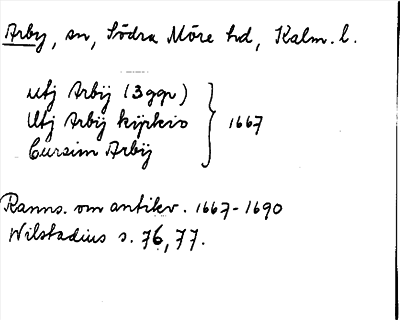 Arby, sn, Södra Möre hd, Kalm. l.
utj Arbij (3 ggr)
Utj Arbij kijrkio } 1667
Cursim Arbij
Ranns. om antikv. 1667-1690
Wilstadius s. 76, 77.